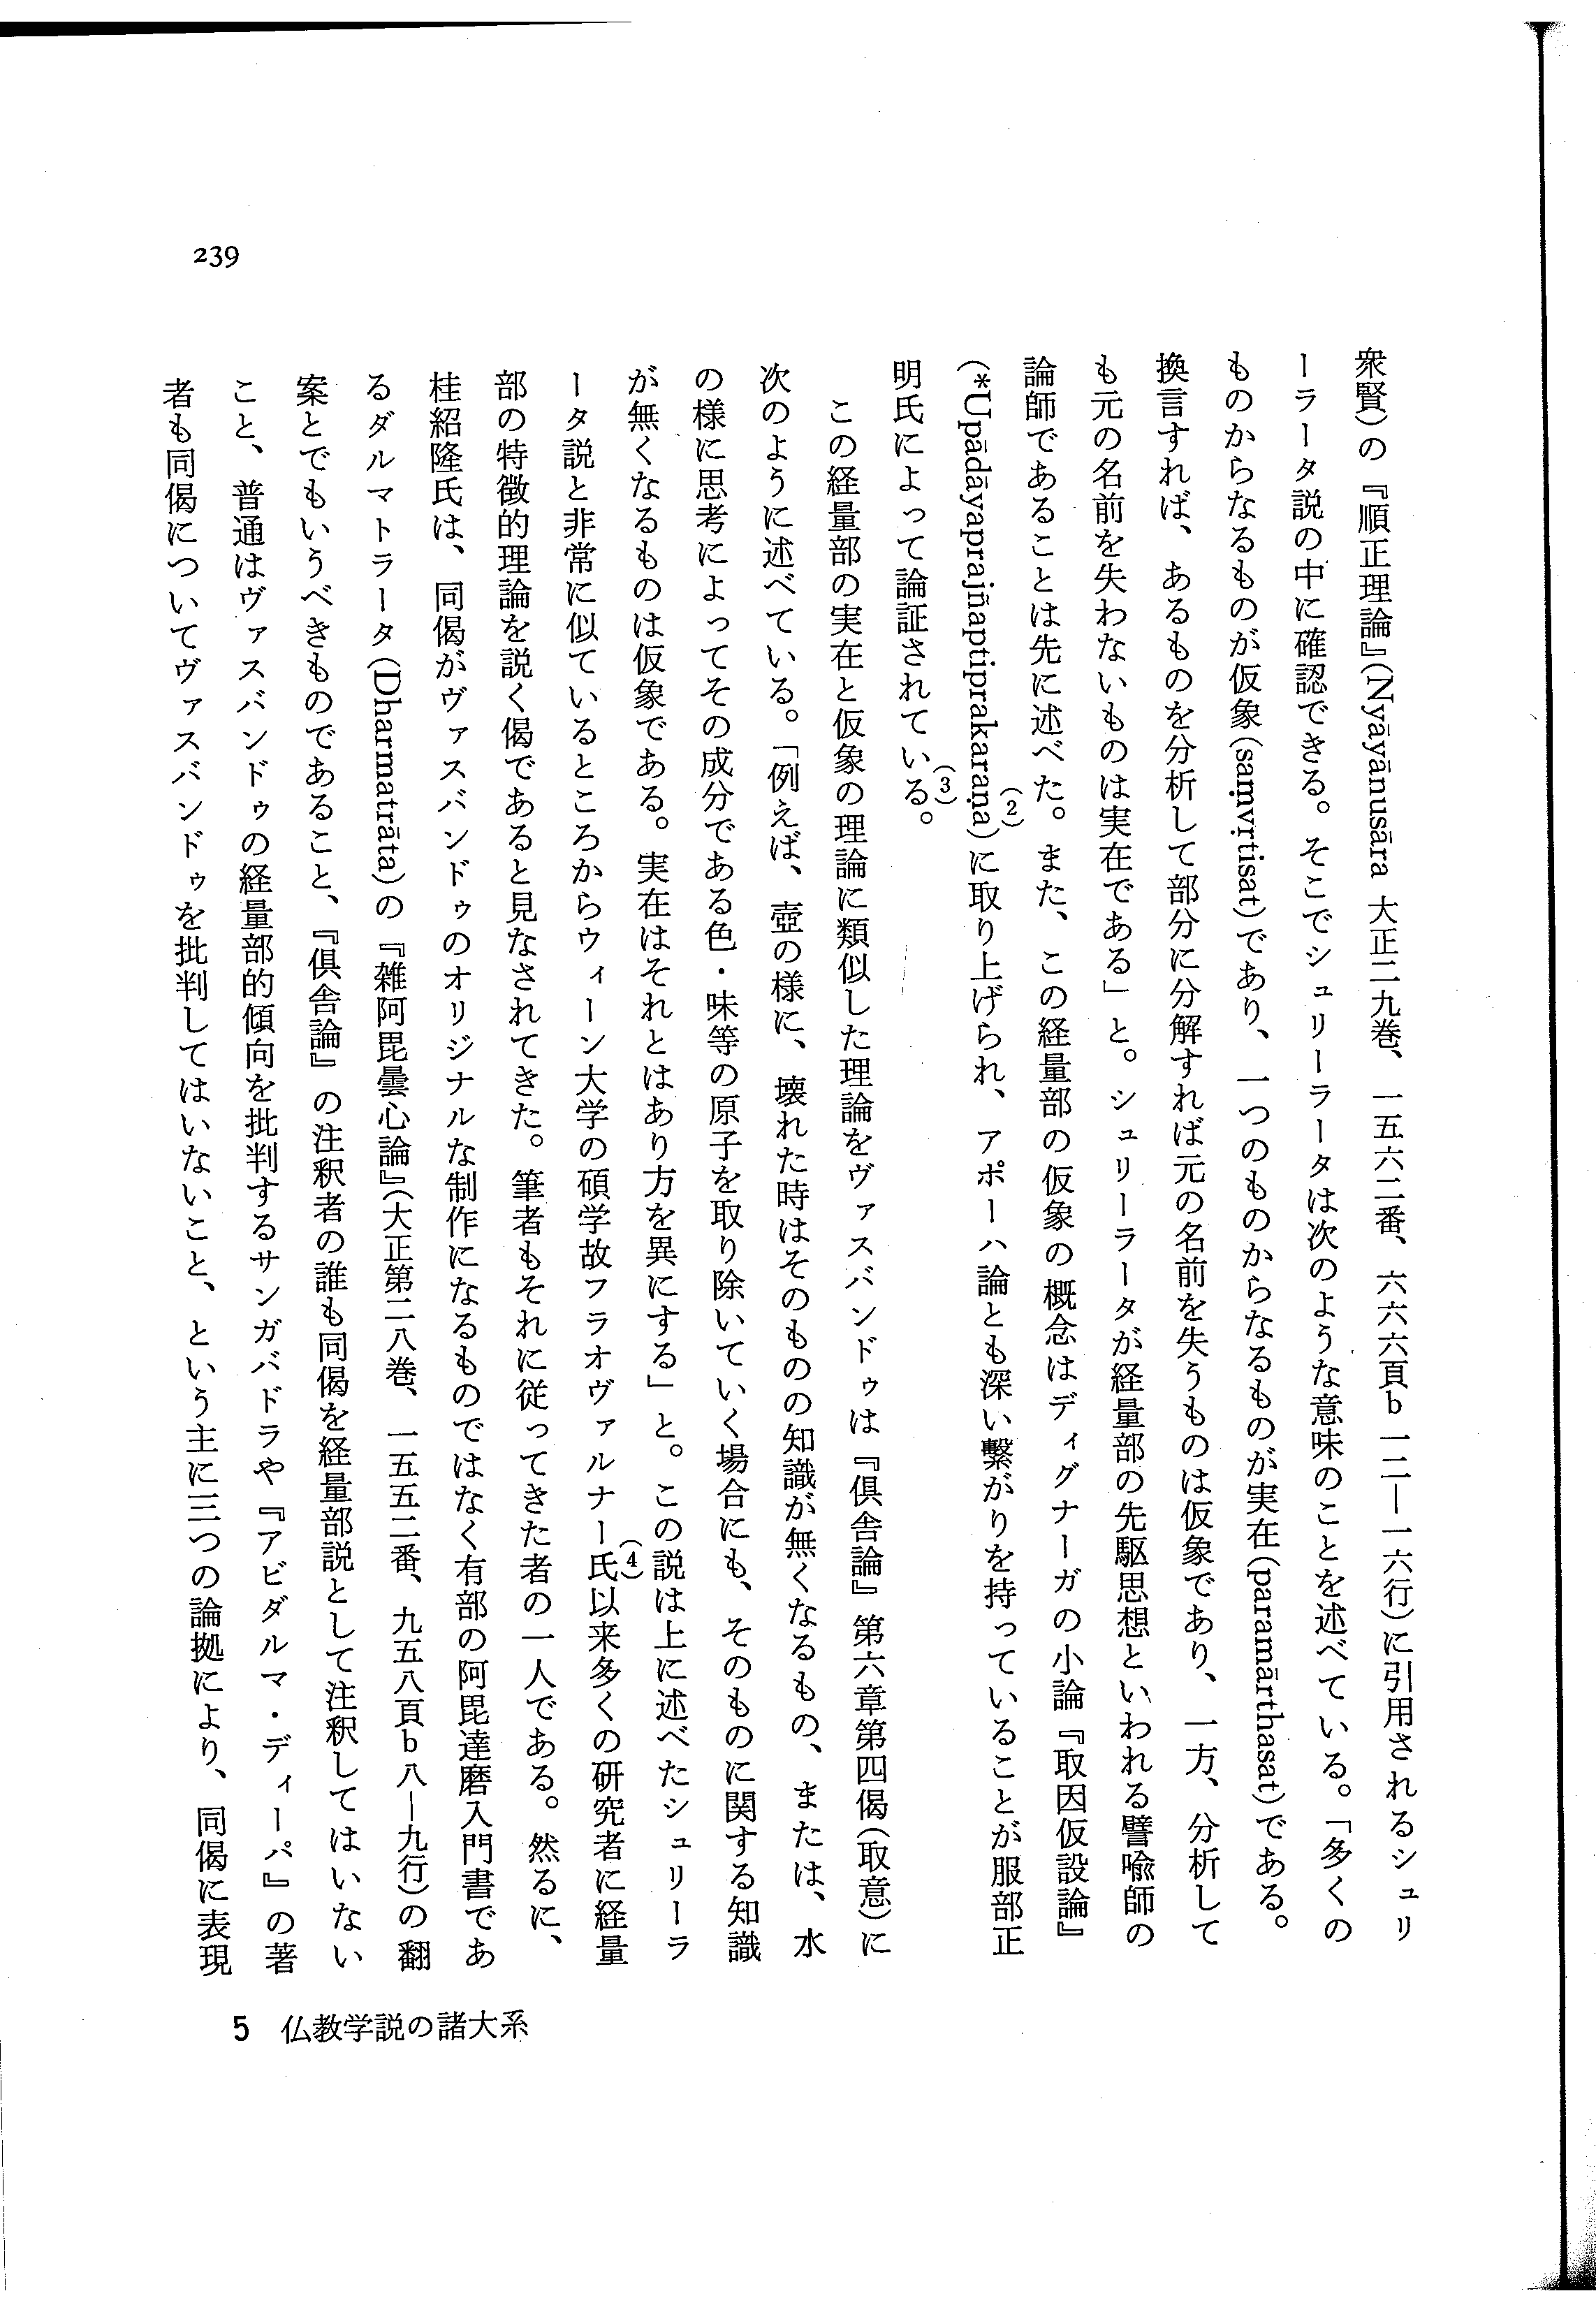 衆賢)の『順正理論』(Nyāyānusāra 大正二九巻、一五六二番、六六六頁b一二―一六行)に引用されるシュリ
ーラータ説の中に確認できる。そこでシュリーラータは次のような意味のことを述べている。「多くの
ものからなるものが仮象(saṃvṛtisat)であり、一つのものからなるものが実在(paramārthasat)である。
換言すれば、あるものを分析して部分に分解すれば元の名前を失うものは仮象であり、一方、分析して
も元の名前を失わないものは実在である」と。シュリーラータが経量部の先駆思想といわれる譬喩師の
論師であることは先に述べた。また、この経量部の仮象の概念はディグナーガの小論『取因仮設論』
(*Upādāyaprajñaptiprakaraṇa)(2)に取り上げられ、アポーハ論とも深い繋がりを持っていることが服部正
明氏によって論証されている(3)。
この経量部の実在と仮象の理論に類似した理論をヴァスバンドゥは『俱舎論』第六章第四偈(取意)に
次のように述べている。「例えば、壺の様に、壊れた時はそのものの知識が無くなるもの、または、水
の様に思考によってその成分である色・味等の原子を取り除いていく場合にも、そのものに関する知識
が無くなるものは仮象である。実在はそれとはあり方を異にする」と。この説は上に述べたシュリーラ
ータ説と非常に似ているところからウィーン大学の碩学故フラオヴァルナー氏(4)以来多くの研究者に経量
部の特徴的理論を説く偈であると見なされてきた。筆者もそれに従ってきた者の一人である。然るに、
桂紹隆氏は、同偈がヴァスバンドゥのオリジナルな制作になるものではなく有部の阿毘達磨入門書であ
るダルマトラータ(Dharmatrāta)の『雑阿毘曇心論』(大正第二八巻、一五五二番、九五八頁b八―九行)の翻
案とでもいうべきものであること、『俱舎論』の注釈者の誰も同偈を経量部説として注釈してはいない
こと、普通はヴァスバンドゥの経量部的傾向を批判するサンガバドラや『アビダルマ・ディーパ』の著
者も同偈についてヴァスバンドゥを批判してはいないこと、という主に三つの論拠により、同偈に表現
239
5 仏教学説の諸大系